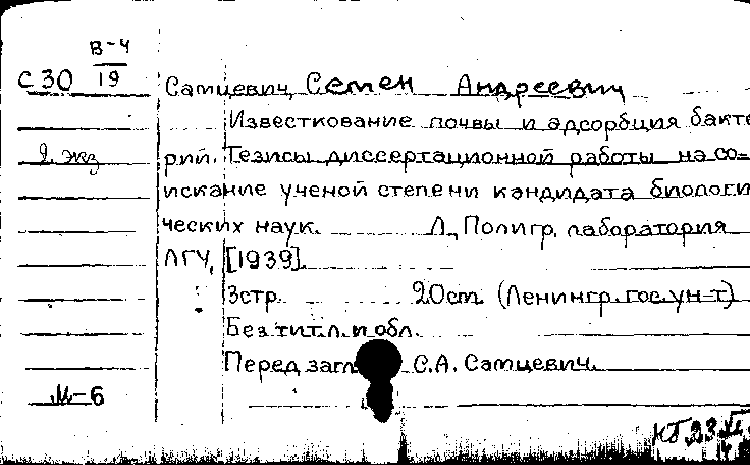 В-4
С30 19
Самцевич, Семен Андреевич
Известкование почвы и адсорбция бакте
2 экз
рий. Тезисы диссертационной работы на со-
искание ученой степени кандидата биологи
ческих наук. Л., Полигр. лаборатория
ЛГУ, [1939].
3стр. 20см. (Ленингр. гос. ун-т)
Без тит. л. и обл.
Перед загл. С.А. Самцевич.
М-6
КБ 23